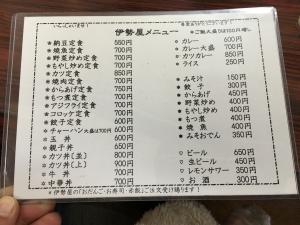 伊勢屋メニュー
＊納豆定食 550円
＊焼魚定食 700円
＊野菜炒め定食 700円
＊もやし炒め定食 700円
＊カツ定食 850円
＊焼肉定食 700円
＊からあげ定食 750円
＊もつ煮定食 700円
＊アジフライ定食 700円
＊コロッケ定食 700円
＊餃子定食 600円
＊チャーハン
＊玉丼 600円
＊親子丼 650円
＊カツ丼(並) 800円
＊カツ丼(上)
＊牛丼 700円
＊中華丼 700円
○カレー 600円
○カレー大盛 700円
○カツカレー 850円
○ライス 250円
○みそ汁 150円
○餃子 300円
○からあげ 450円
○野菜炒め 400円
○もやし炒め 400円
○もつ煮 400円
○焼魚 400円
○みそおでん 350円
○ビール 650円
○生ビール 450円
○レモンサワー 350円
○お酒 300円
＊伊勢屋の「おだんご・お寿司・赤飯」ご注文受け賜ります！